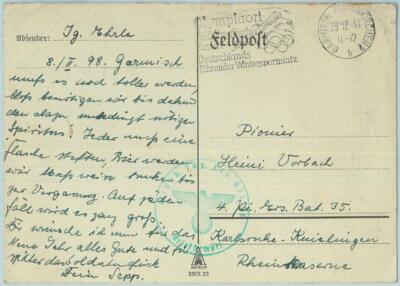 Absender: Ig. Ehrle
8./II. 98. Garmisch
muß es noch toller werden
bloß benötigen wir bis dahin
den dazu unbedingt nötigen
Spiritus. Jeder muß eine
Flasche stiften, Bier werden
wir
zur Verfügung. Auf jeden
Fall wird es ganz groß.
So wünsche ich nun für das
Neue Jahr alles Gute und für
später Soldatenglück
Dein Sepp.
Olympiaort
Deutschlands
führender Wintersportplatz
Feldpost
GARMISCH-PARTENKIRCHEN
29.12.41
11-12
Pionier
Heini Vorbach
4. Pi. Ers. Bat. 35.
Karlsruhe-Knielingen
Rheinkaserne
A
3303 23